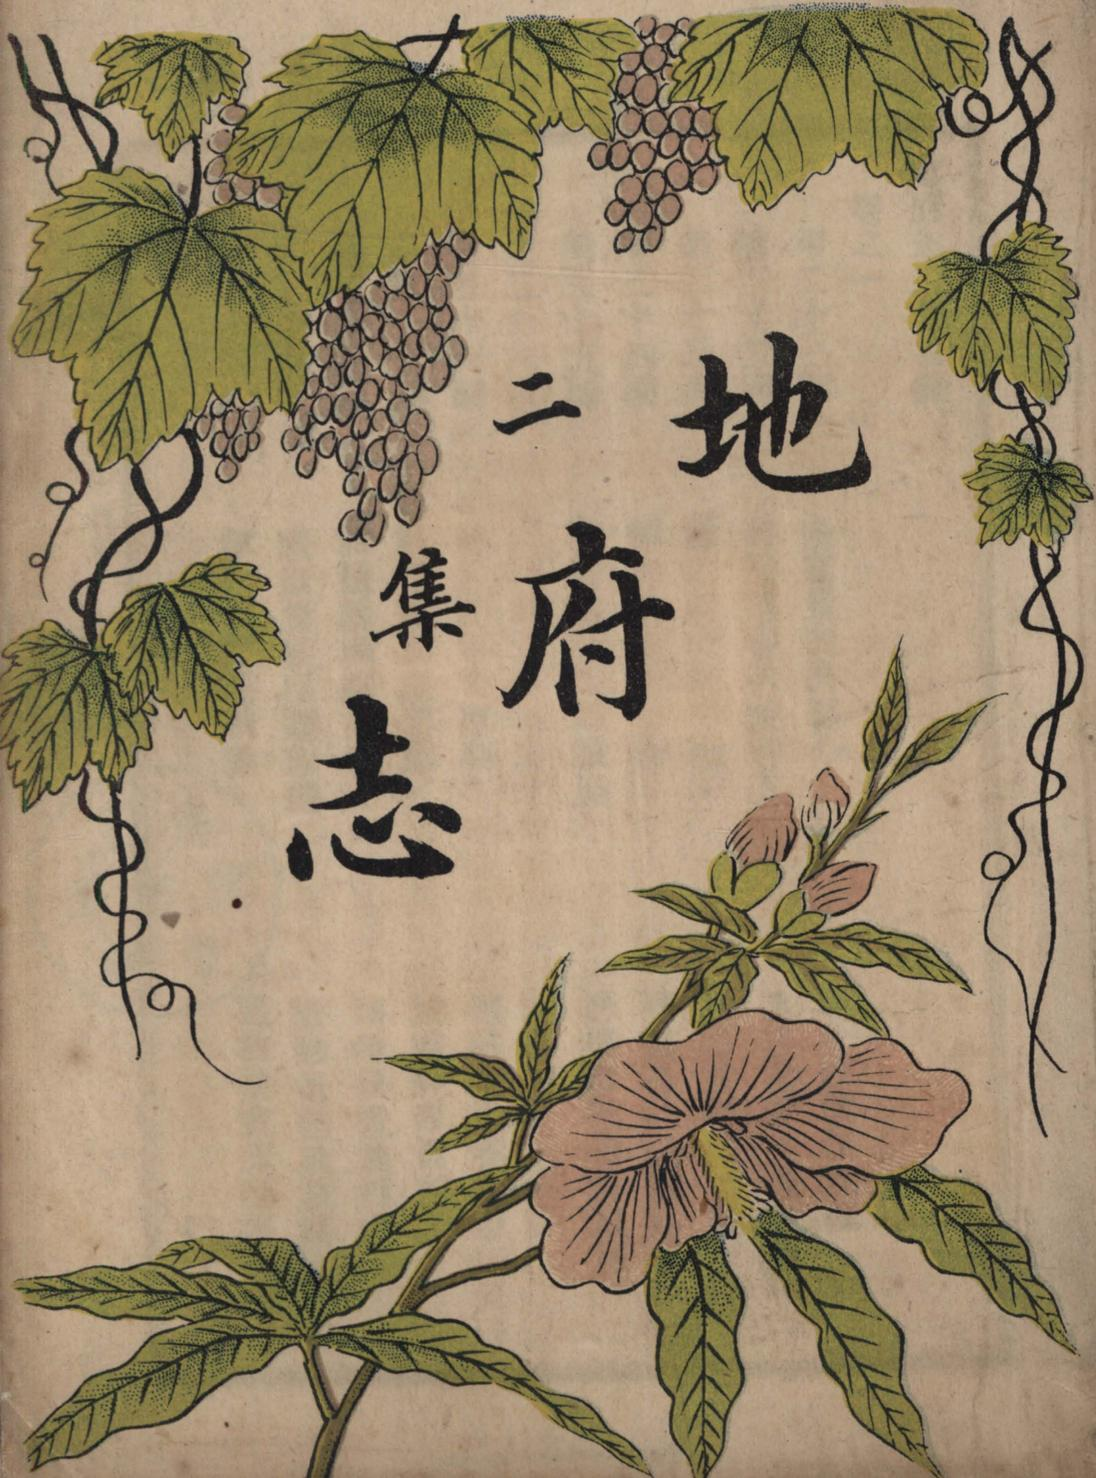 地府志
二集